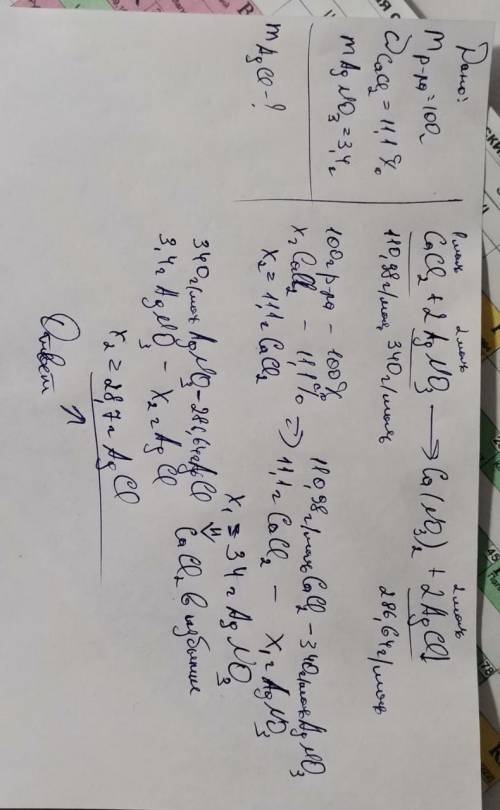 Дано:
m р-ра = 100г
ω CaCl₂ = 11,1%
m AgNO₃ = 3,4г
m AgCl - ?
1 моль 2 моль 2 моль
CaCl₂ + 2AgNO₃ → Ca(NO₃)₂ + 2AgCl
110,98 г/моль 340 г/моль 286,64 г/моль
100г р-ра - 100%
x г CaCl₂ - 11,1%
x₂ = 11,1г CaCl₂
=> 110,98 г/моль CaCl₂ - 340 г/моль AgNO₃
11,1г CaCl₂ - x₁ г AgNO₃
x₁ = 34г AgNO₃
=>
CaCl₂ в избытке
340 г/моль AgNO₃ - 286,64 г AgCl
3,4г AgNO₃ - x₂ г AgCl
x₂ = 28,7г AgCl
Ответ